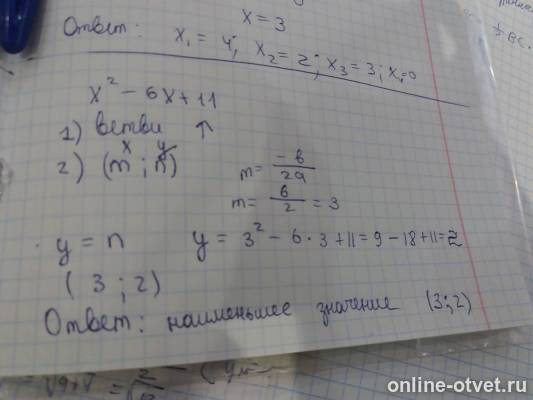 x = 3
Ответ: x₁ = 4; x₂ = 2; x₃ = 3; x₄=0
x² - 6x + 11
1) ветви ↑
x y
2) (m ; n) m = -b/2a
m = 6/2 = 3
y = n y = 3² - 6 · 3 + 11 = 9 - 18 + 11 = 2
(3 ; 2)
Ответ: наименьшее значение (3;2)
online-otvet.ru